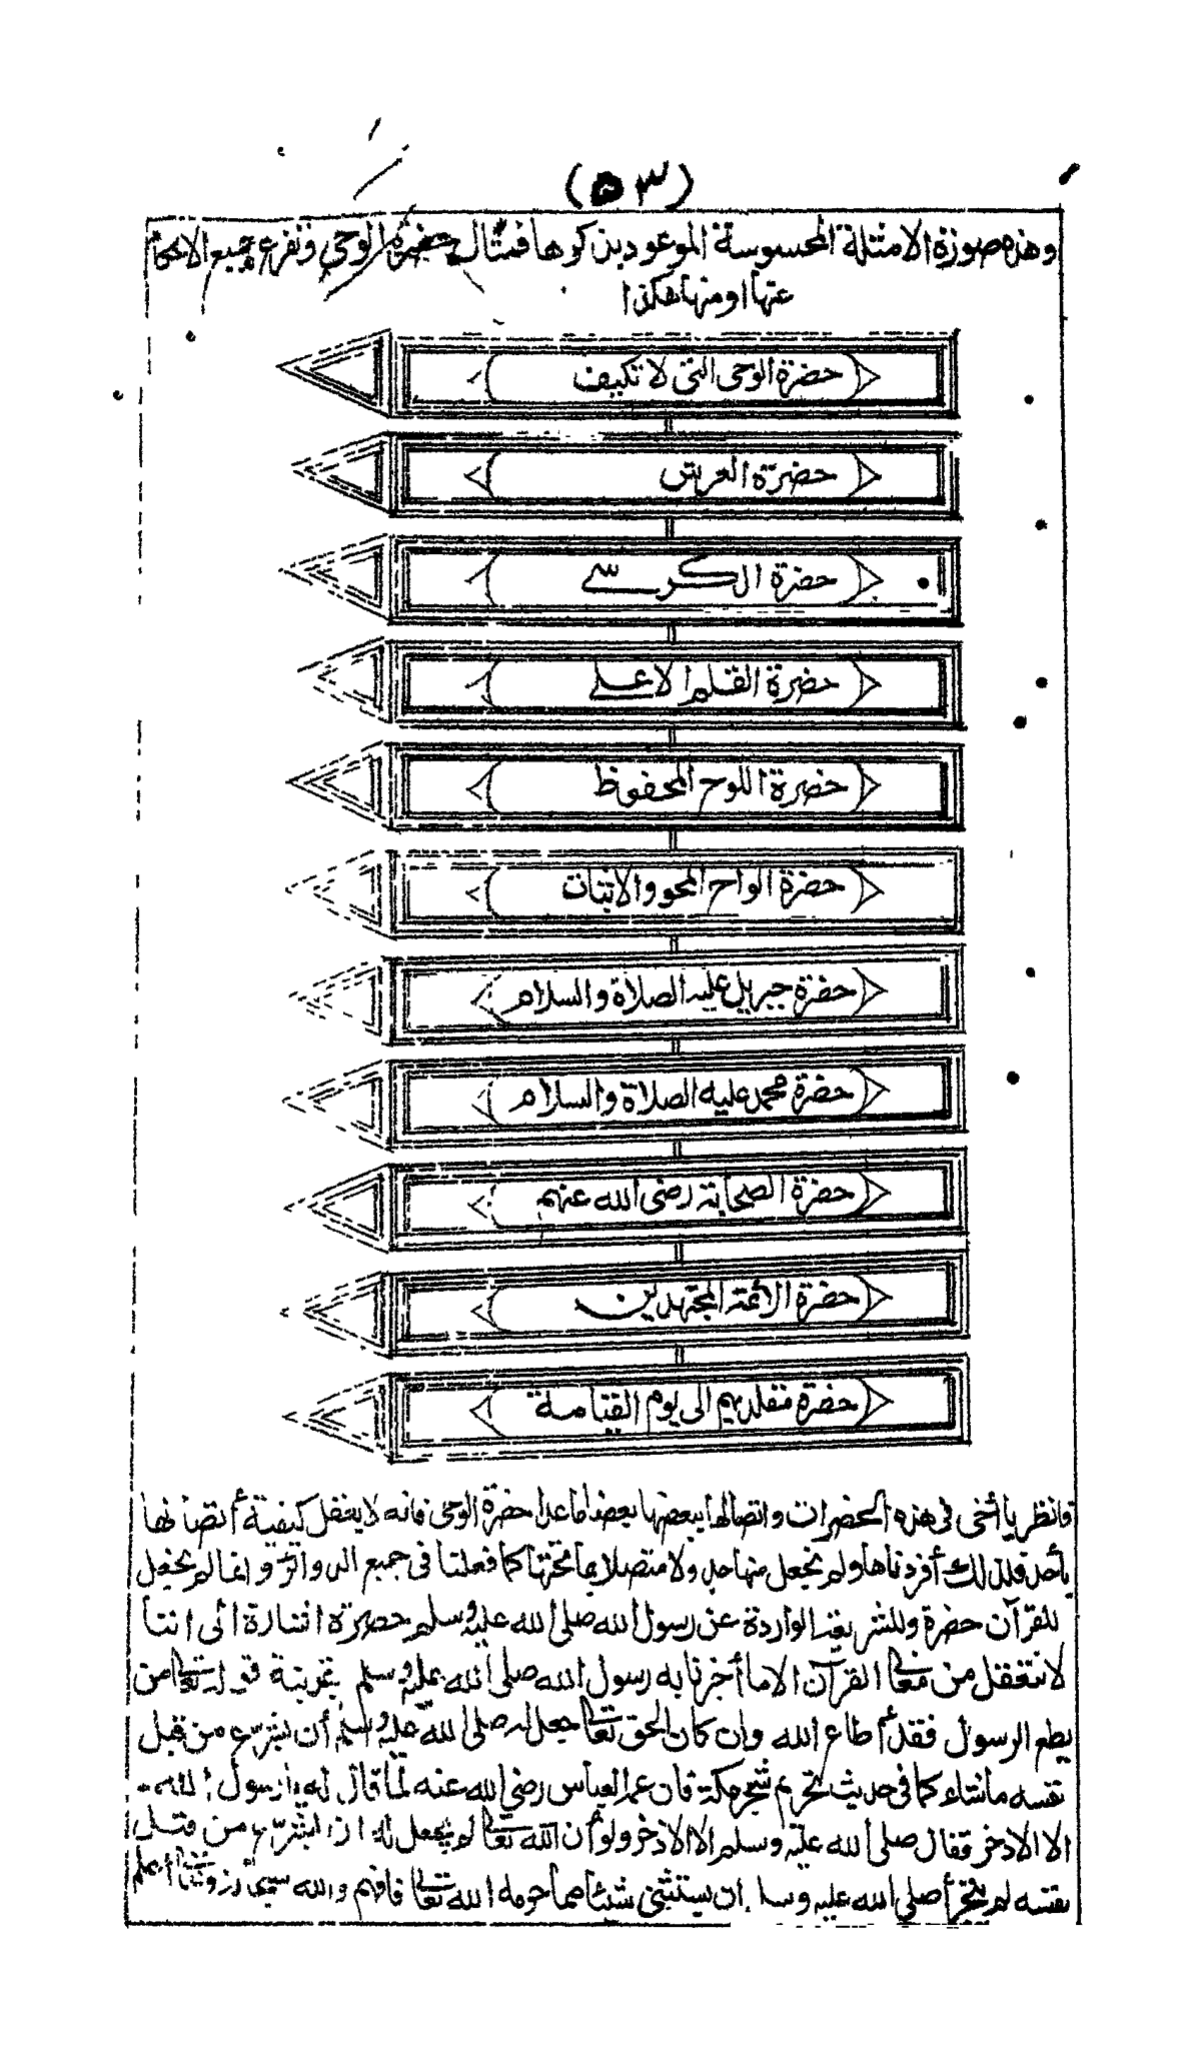 (٥٣)
وهذه صورة الامثلة المحسوسة الموعود بذكرها فمثال حضرة الوحي وتفرع جميع الاحكام
عنها ومنها هكذا
حضرة الوحى التى لا تكيف
حضرة العرش
حضرة الكرسي
حضرة القلم الاعلى
حضرة اللوح المحفوظ
حضرة الواح المحو والاثبات
حضرة جبريل عليه الصلاة والسلام
حضرة محمد عليه الصلاة والسلام
حضرة الصحابة رضى الله عنهم
حضرة الائمة المجتهدين
حضرة مقلديهم الى يوم القيامة
فانظر يا أخى فى هذه الحضرات واتصالها ببعضها بعضا ما عدا حضرة الوحى فانه لا يعقل كيفية اتصالها
بأحد فلذلك أفردناها ولم نجعل منها جدولا متصلا بما تحتها كما فعلنا فى جميع الدوائر وانما لم نجعل
للقرآن حضرة وللشريعة الواردة عن رسول الله صلى الله عليه وسلم حضرة اشارة الى اننا
لا نتعقل من معانى القرآن الا ما أخبرنا به رسول الله صلى الله عليه وسلم بقرينة قوله تعالى من
يطع الرسول فقد أطاع الله وان كان الحق تعالى جعل له صلى الله عليه وسلم أن يشرع من قبل
نفسه ما شاء كما فى حديث تحريم شجر مكة فان عمه العباس رضى الله عنه لما قال له يا رسول الله
الا الاذخر فقال صلى الله عليه وسلم الا الاذخر ولو أن الله تعالى لم يجعل له ان يشرع من قبل
نفسه لم يتجرأ صلى الله عليه وسلم ان يستثنى شيئا مما حرمه الله تعالى فافهم والله سبحانه وتعالى أعلم